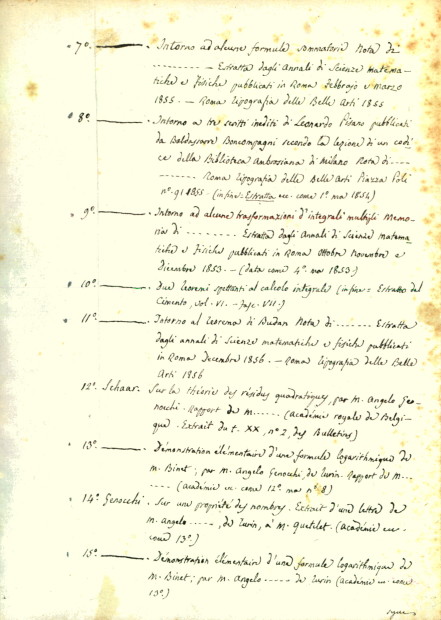 7º. ——— . Intorno ad alcune formule sommatorie Nota di
- - - - - - - - Estratta dagli Annali di Scienze matema-
tiche e fisiche pubblicati in Roma Febbrajo e Marzo
1855. — Roma Tipografia delle Belle Arti 1855
8º. ——— . Intorno a tre scritti inediti di Leonardo Pisano pubblicati
da Baldassarre Boncompagni secondo la lezione di un codi-
ce della Biblioteca Ambrosiana di Milano Nota di - - - - -
- - - - - - - - Roma Tipografia delle Belle Arti Piazza Poli
nº. 91 1855 — (in fine = Estratta ec. come 1º. ma 1854)
9º. ——— . Intorno ad alcune trasformazioni d'integrali multipli Memo-
ria di - - - - - - - Estratta dagli Annali di Scienze matema-
tiche e Fisiche pubblicati in Roma Ottobre Novembre e
Dicembre 1853. — (data come 4º. ma 1853.)
10º. ——— . Due teoremi spettanti al calcolo integrale (in fine = Estratto dal
Cimento, vol. VI. — Fasc. VII.)
11º. ——— . Intorno al teorema di Budan Nota di - - - - - - - Estratta
dagli annali di Scienze matematiche e fisiche pubblicati
in Roma Decembre 1856 — Roma Tipografia delle Belle
Arti 1856
12º. Schaar. Sur la théorie des résidus quadratiques, par M. Angelo Ge-
nocchi. Rapport de M. - - - - - (académie royale de Belgi-
que. Extrait du t. XX, nº 2, des Bulletins)
13º. ——— . Démonstration élémentaire d'une formule logarithmique de
M. Binet; par M. Angelo Genocchi, de Turin. Rapport de M. - -
- - - - - (académie ec. come 12º. ma nº 8)
14º. Genocchi. Sur une propriété des nombres. Extrait d'une lettre de
M. Angelo - - - - - , de Turin, à M. Quetelet. (académie ec.
come 13º.)
15º. ——— . Démonstration élémentaire d'une formule logarithmique de
M. Binet; par M. Angelo - - - - - de Turin (académie ec. come
13º.)
segue